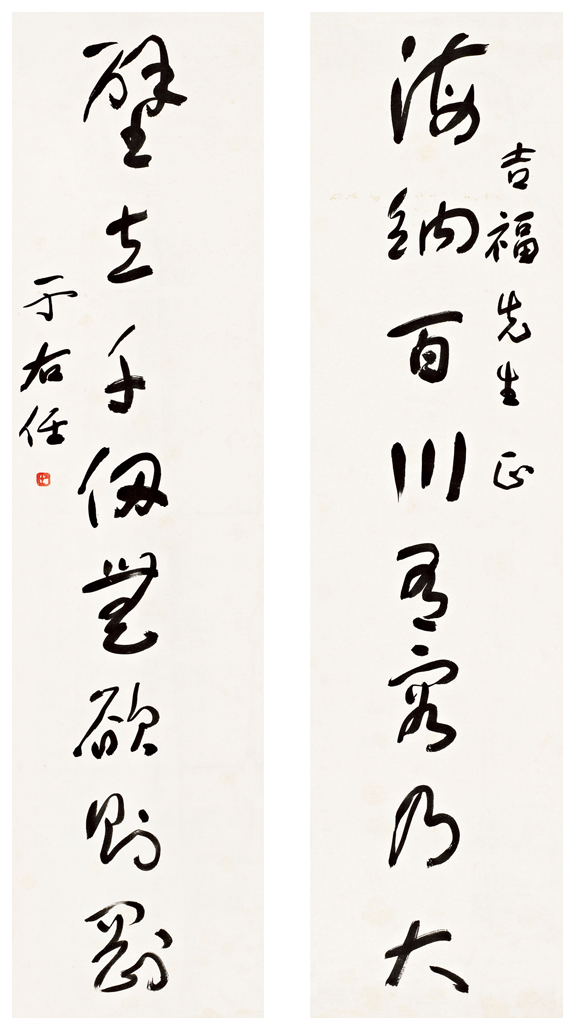 海納百川有容乃大
吉福先生正
壁立千仞無欲則剛
于右任